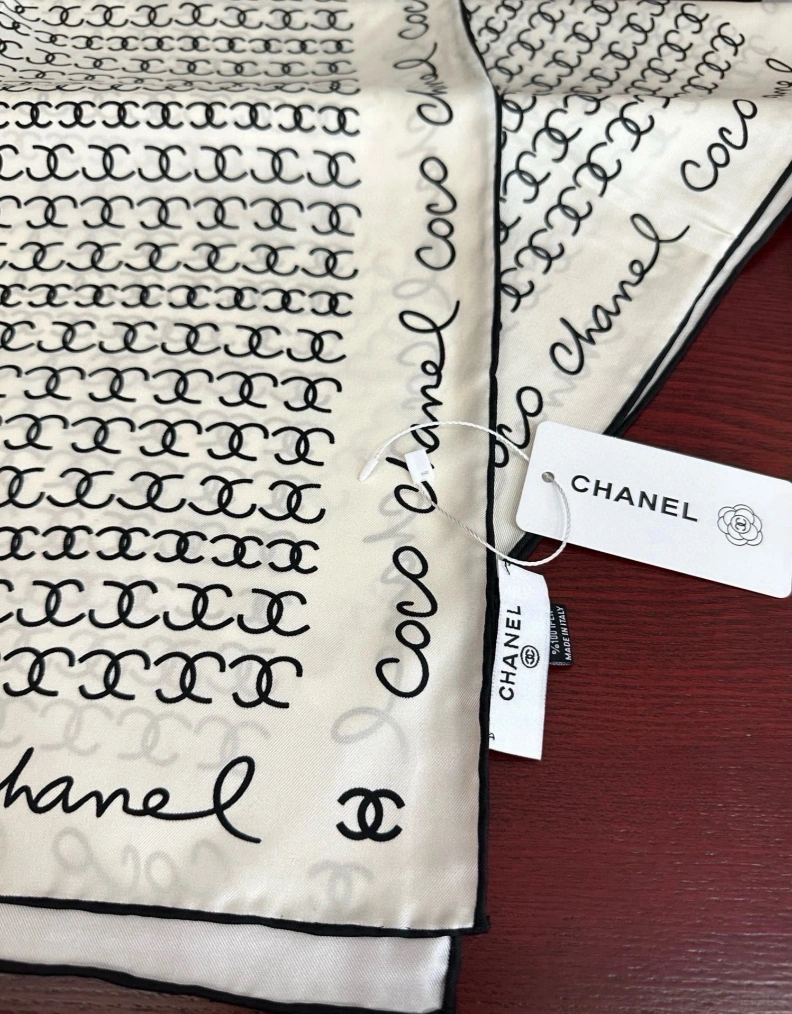 coco chanel coco chanel coco
coco chanel coco
chanel
CHANEL
CHANEL
%100 İPEK
MADE IN ITALY